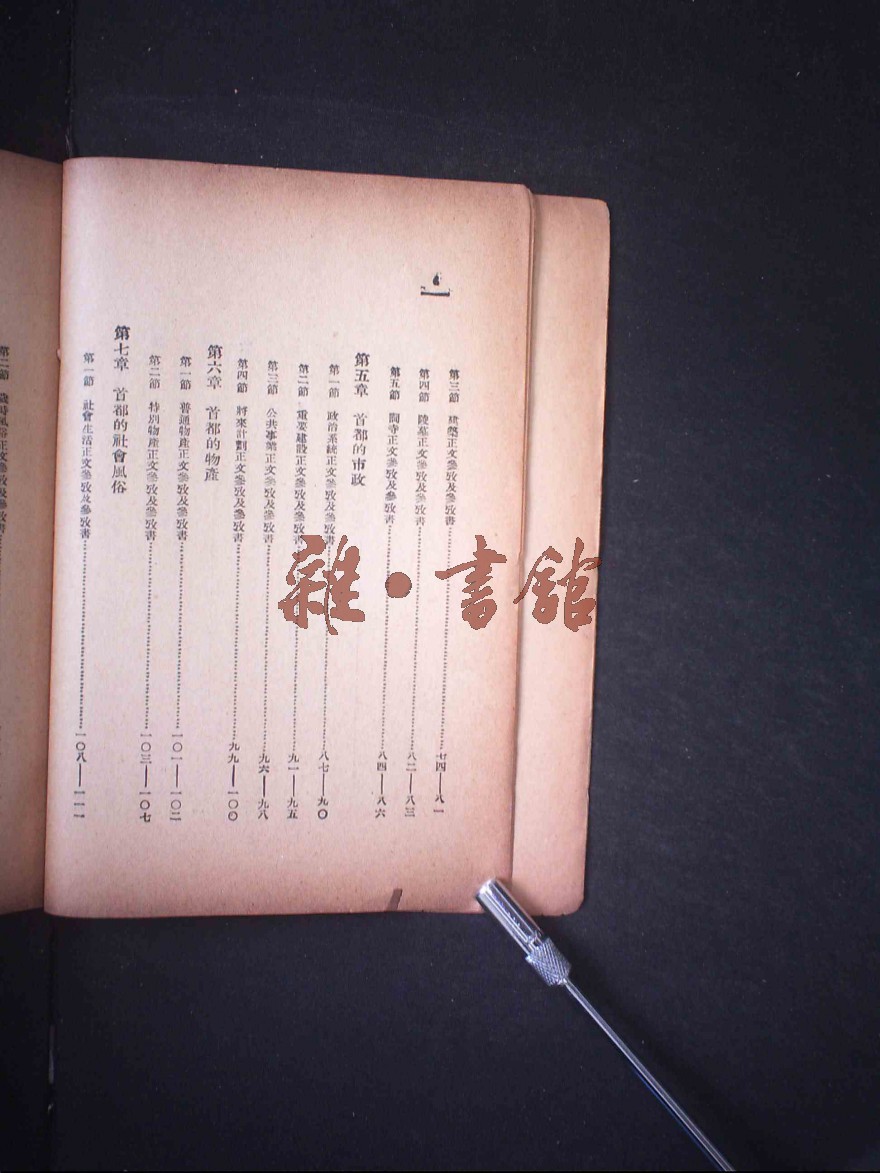 第三節 建築正文參攷及參攷書……七四——八一
第四節 陵墓正文參攷及參攷書……八二——八三
第五節 祠寺正文參攷及參攷書……八四——八六
第五章 首都的市政
第一節 政治系統正文參攷及參攷書……八七——九〇
第二節 重要建設正文參攷及參攷書……九一——九五
第三節 公共事業正文參攷及參攷書……九六——九八
第四節 將來計劃正文參攷及參攷書……九九——一〇〇
第六章 首都的物產
第一節 普通物產正文參攷及參攷書……一〇一——一〇二
第二節 特別物產正文參攷及參攷書……一〇三——一〇七
第七章 首都的社會風俗
第一節 社會生活正文參攷及參攷書……一〇八——一一一
第二節 歲時風俗正文參攷及參攷書
雜·書館